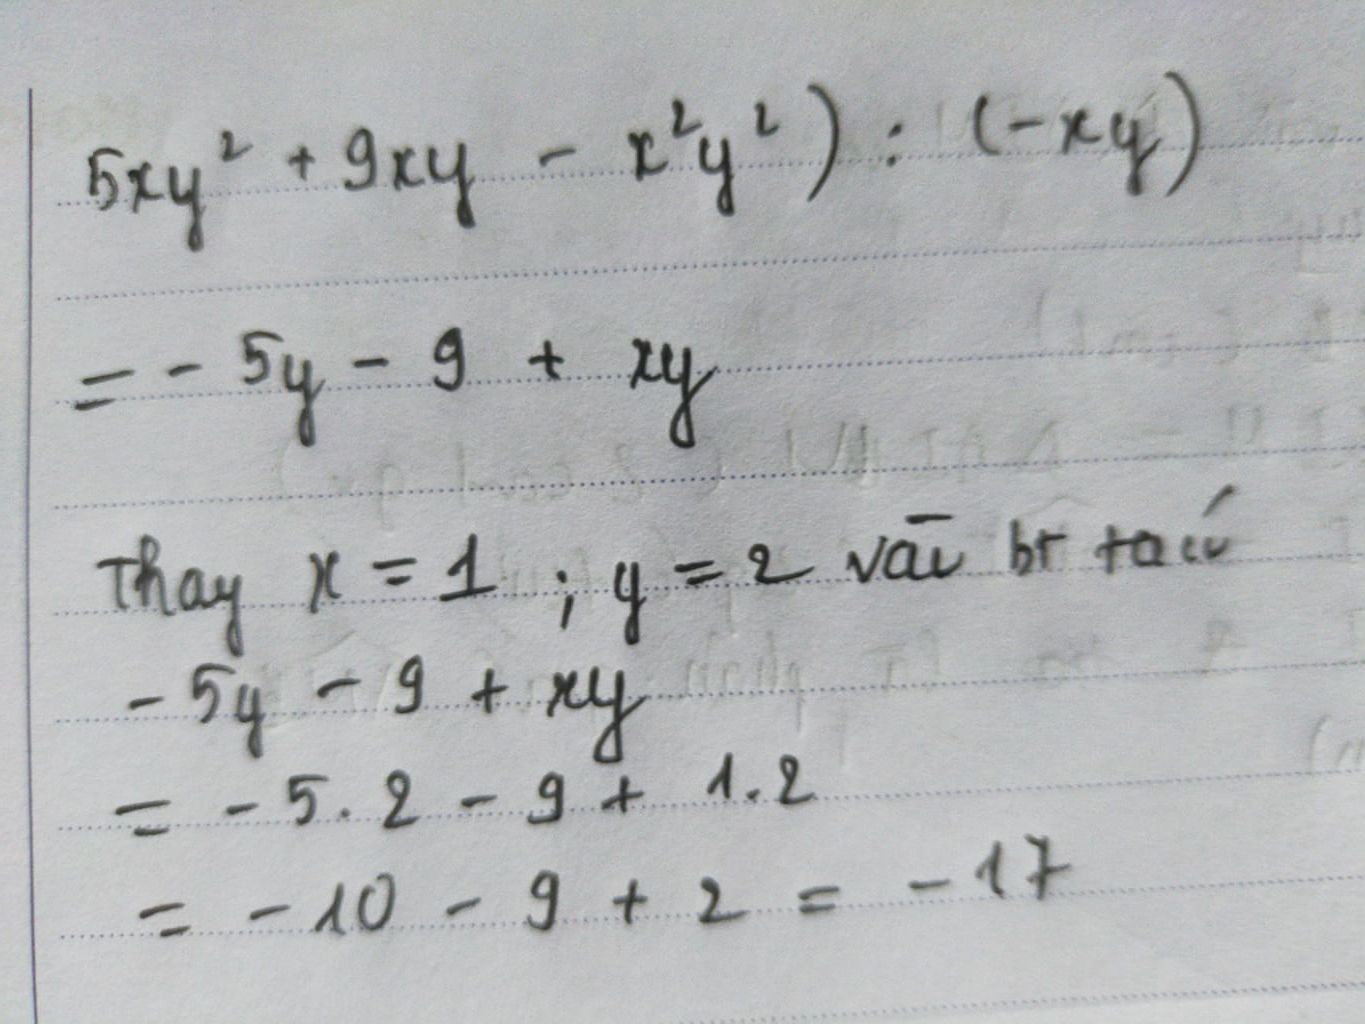 5xy² + 9xy - x²y²) : (-xy)
= - 5y - 9 + xy
Thay x = 1 ; y = 2 vào bt ta có
- 5y - 9 + xy
= - 5. 2 - 9 + 1. 2
= - 10 - 9 + 2 = - 17